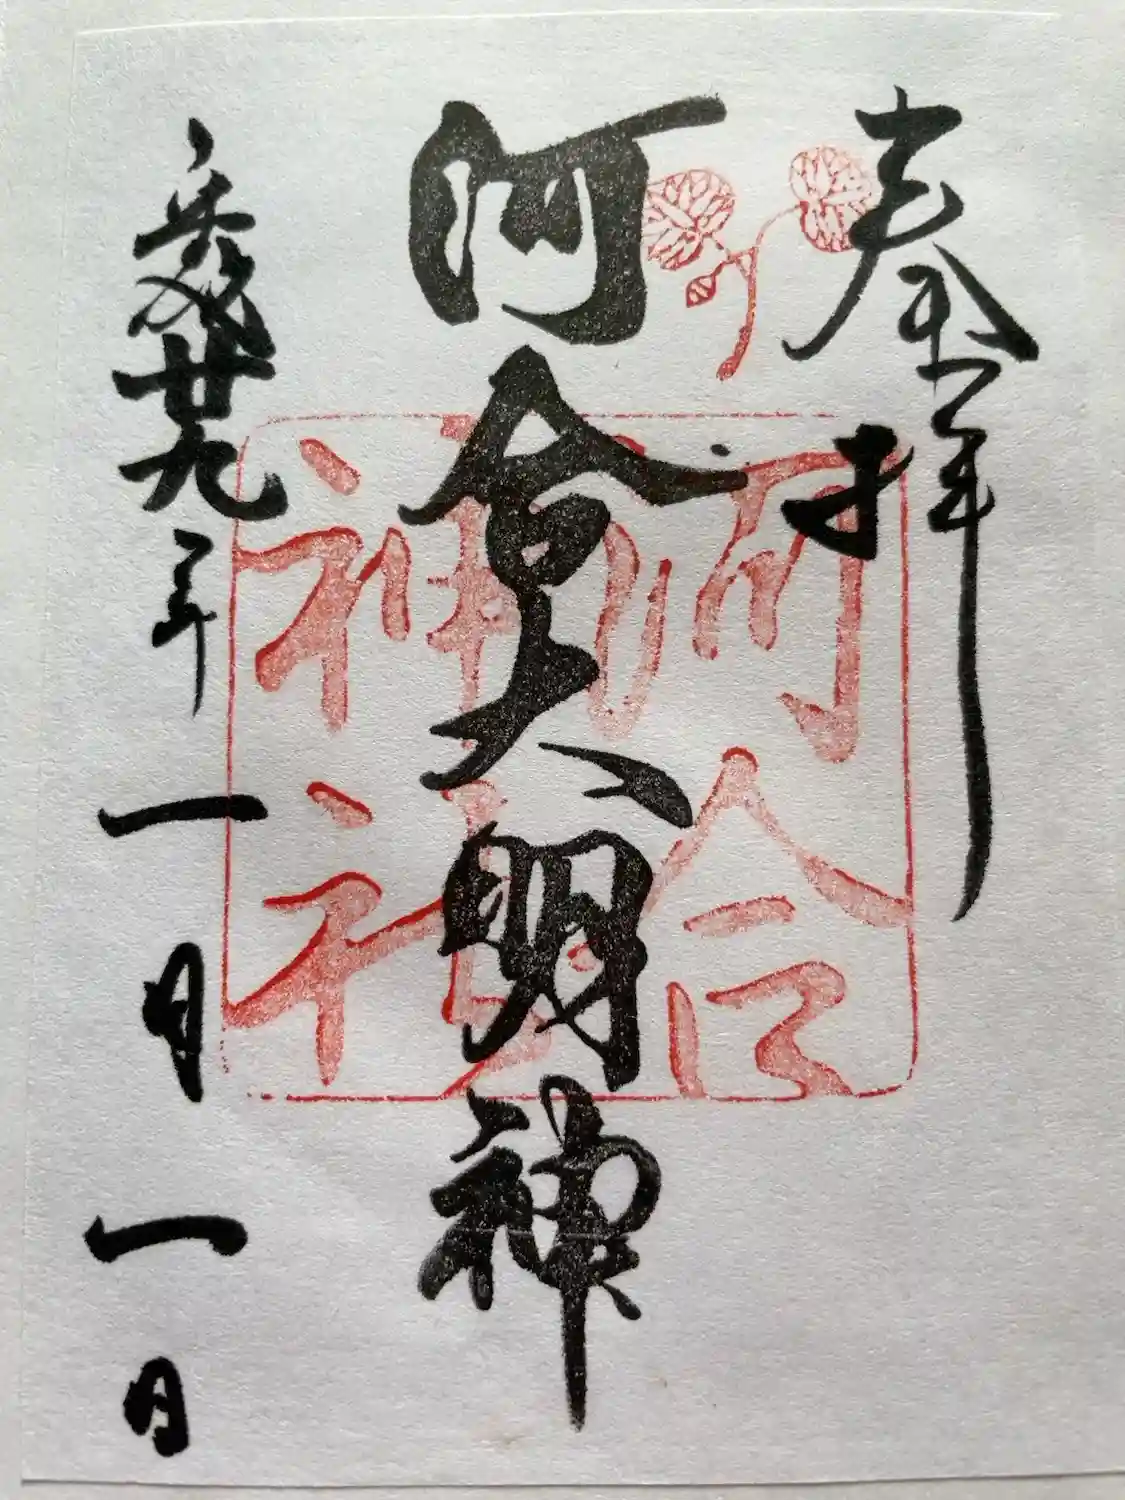 奉拝
河合大明神
平成廿九年一月一日
河合
神社